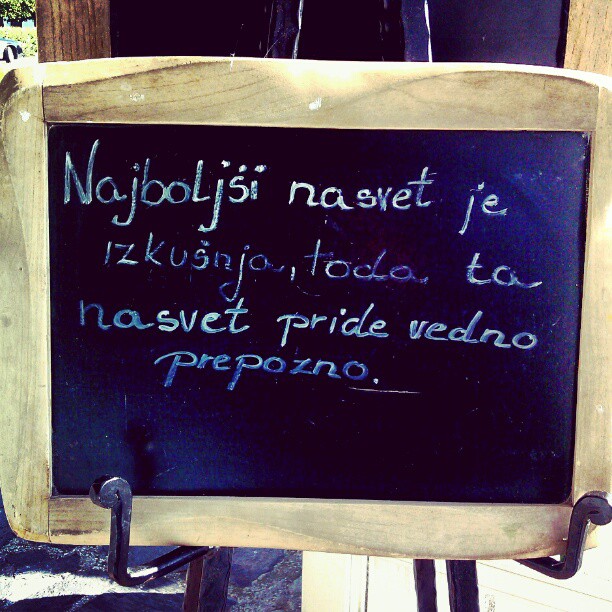 Najboljši nasvet je
izkušnja, toda ta
nasvet pride vedno
prepozno.